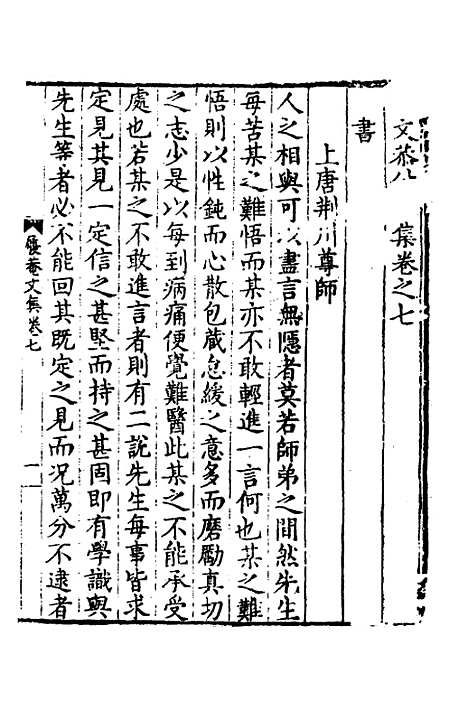 文恭公 集卷之七
書
上唐荆川尊師
人之相與可以盡言無隱者莫若師弟之間然先生
每苦某之難悟而某亦不敢輕進一言何也某之難
悟則以性鈍而心散包蔵怠緩之意多而磨勵真切
之志少是以每到病痛便覺難醫此某之不能承受
處也若某之不敢進言者則有二説先生每事皆求
定見其見一定信之甚堅而持之甚固即有學識與
先生等者必不能回其既定之見而况萬分不逮者
菴文集卷七
一